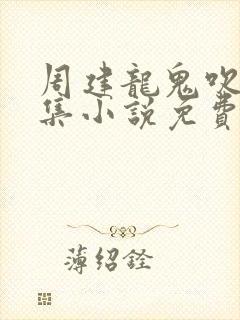 周建龍鬼吹
集小說免費
薄绍銓